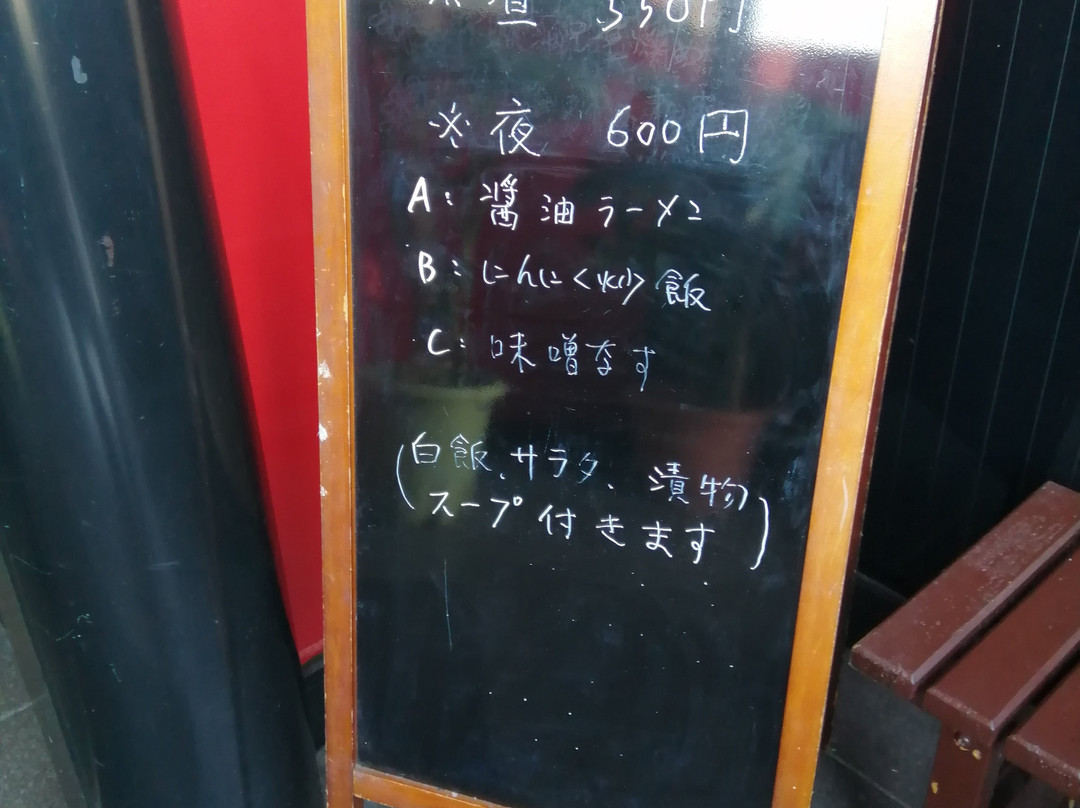 ※昼 550円
※夜 600円
A: 醤油ラーメン
B: にんにく炒飯
C: 味噌なす
(白飯、サラダ、漬物
スープ付きます)